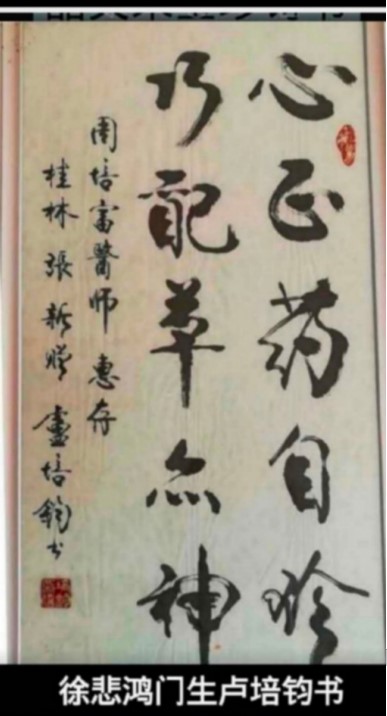 心正药自灵
巧配草亦神
周培富醫师 惠存
桂林張新贈 盧培鈞书
徐悲鸿门生卢培钧书